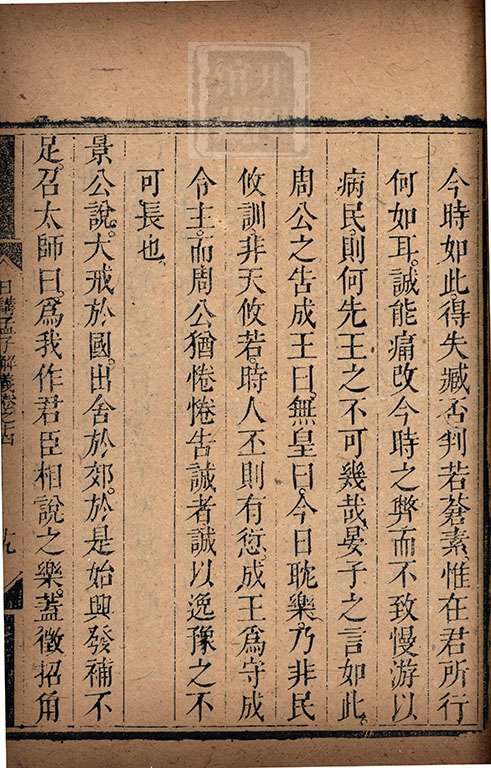 今時如此得失臧否判若蒼素惟在君所行
何如耳。誠能痛改今時之弊而不致慢游以
病民。則何先王之不可幾哉。晏子之言如此。
周公之告成王曰。無皇曰。今日耽樂乃非民
攸訓。非天攸若。時人丕則有愆。成王為守成
令主。而周公猶惓惓告誡者誠以逸豫之不
可長也。
景公說。大戒於國。出舍於郊。於是始興發補不
足。召太師曰。為我作君臣相說之樂。蓋徵招角
日講孟子解義卷之十四
九